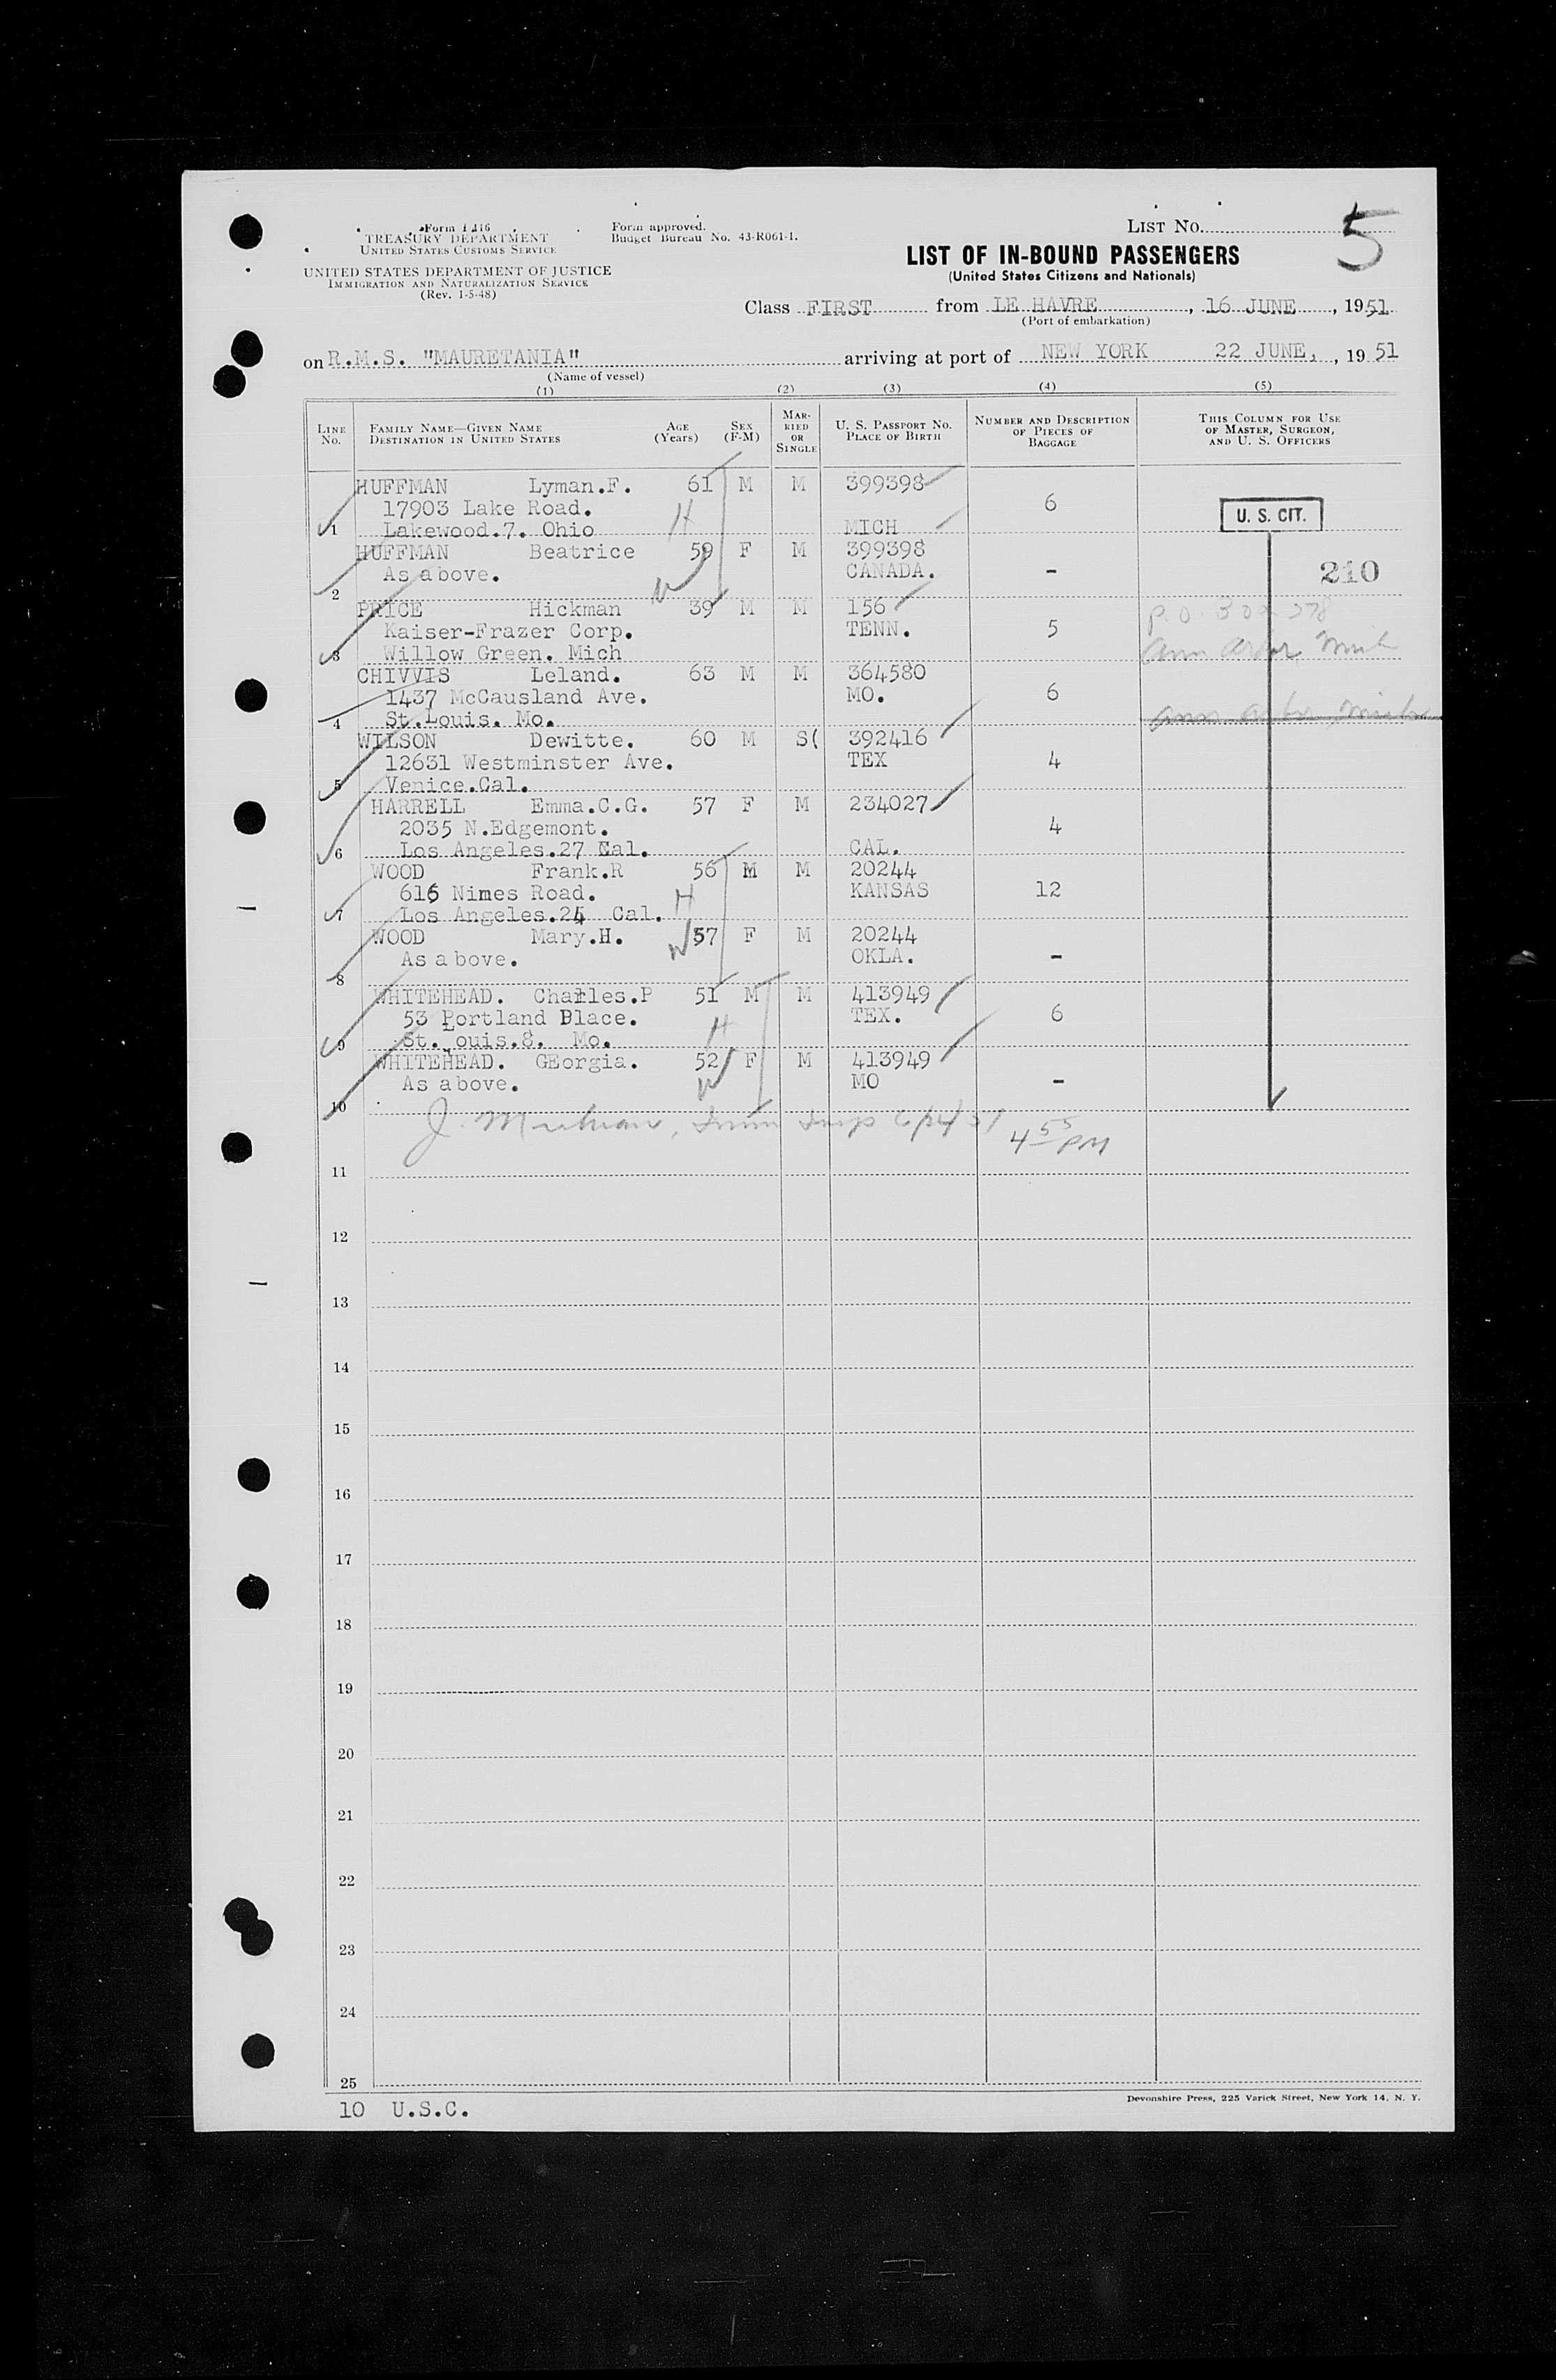 Form I 416
TREASURY DEPARTMENT
UNITED STATES CUSTOMS SERVICE
UNITED STATES DEPARTMENT OF JUSTICE
IMMIGRATION AND NATURALIZATION SERVICE
(Rev. 1-5-48)
Form approved.
Budget Bureau No. 43-R061-1.
LIST NO. 5
LIST OF IN-BOUND PASSENGERS
(United States Citizens and Nationals)
Class FIRST from LE HAVRE, 16 JUNE, 1951
(Port of embarkation)
on R.M.S. "MAURETANIA" arriving at port of NEW YORK 22 JUNE, , 1951
(Name of vessel)
(1) (2) (3) (4) (5)
LINE NO. FAMILY NAME—GIVEN NAME DESTINATION IN UNITED STATES AGE (Years) SEX (F-M) MARRIED OR SINGLE U. S. PASSPORT NO. PLACE OF BIRTH NUMBER AND DESCRIPTION OF PIECES OF BAGGAGE THIS COLUMN FOR USE OF MASTER, SURGEON, AND U. S. OFFICERS
HUFFMAN Lyman.F. 61 M M 399398
17903 Lake Road. H 6 U. S. CIT.
1 Lakewood.7. Ohio MICH
HUFFMAN Beatrice 59 F M 399398
As above. W CANADA. - 210
2
PRICE Hickman 39 M M 156 P.O. Box 278
Kaiser-Frazer Corp. TENN. 5
3 Willow Green. Mich Ann Arbor Mich
CHIVVIS Leland. 63 M M 364580
1437 McCausland Ave. MO. 6
4 St.Louis. Mo. Ann Arbor, Mich
WILSON Dewitte. 60 M S( 392416
12631 Westminster Ave. TEX 4
5 Venice.Cal.
HARRELL Emma.C.G. 57 F M 234027
2035 N.Edgemont. 4
6 Los Angeles.27 Cal. CAL.
WOOD Frank.R 56 M M 20244
616 Nimes Road. H KANSAS 12
7 Los Angeles.24 Cal.
WOOD Mary.H. W 57 F M 20244
As above. OKLA. -
8
WHITEHEAD. Charles.P 51 M M 413949
53 Portland Place. H TEX. 6
9 St.Louis.8. Mo.
WHITEHEAD. GEorgia. 52 F M 413949
As above. W MO -
10
J. 4 55 PM
11
12
13
14
15
16
17
18
19
20
21
22
23
24
25
10 U.S.C.
Devonshire Press, 225 Varick Street, New York 14, N. Y.